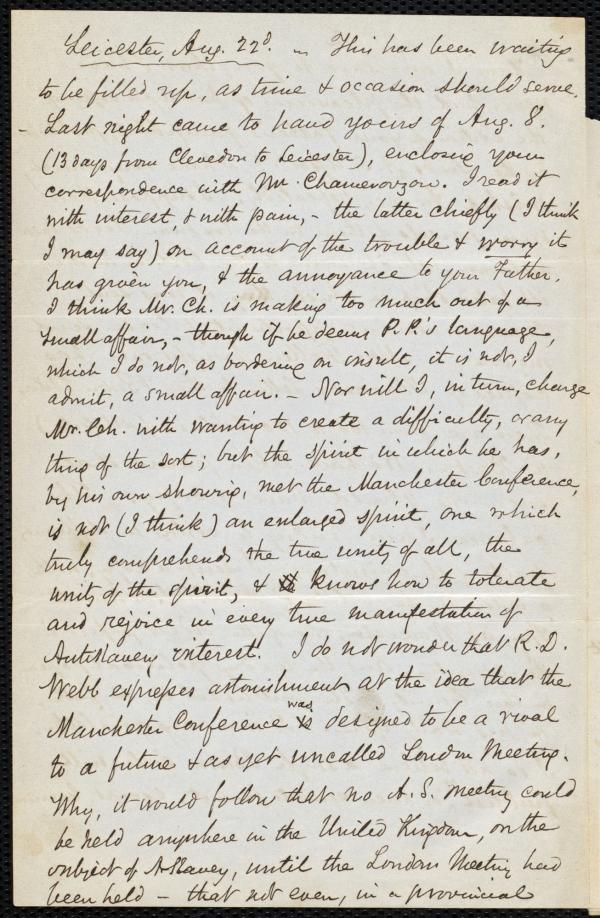 Leicester, Aug. 22d. – This has been waiting
to be filled up, as time & occasion should serve.
Last night came to hand yours of Aug. 8.
(13 days from Clevedon to Leicester), enclosing your
correspondence with Mr. Chamerovzow. I read it
with interest, & with pain, – the latter chiefly (I think
I may say) on account of the trouble & worry it
has given you, & the annoyance to your Father.
I think Mr. Ch. is making too much out of a
small affair, – though if he deems P.P.'s language,
which I do not, as bordering on insult, it is not, I
admit, a small affair. – Nor will I, in turn, charge
Mr. Ch. with wanting to create a difficulty, or any
thing of the sort; but the spirit in which he has,
by his own showing, met the Manchester Conference,
is not (I think) an enlarged spirit, one which
truly comprehends the true unity of all, the
unity of the spirit, & knows how to tolerate
and rejoice in every true manifestation of
Antislavery interest. I do not wonder that R. D.
Webb expresses astonishment at the idea that the
Manchester Conference was designed to be a rival
to a future & as yet uncalled London Meeting.
Why, it would follow that no A. S. meeting could
be held anywhere in the United Kingdom, on the
subject of A-Slavery, until the London Meeting had
been held – that not even, in a provincial